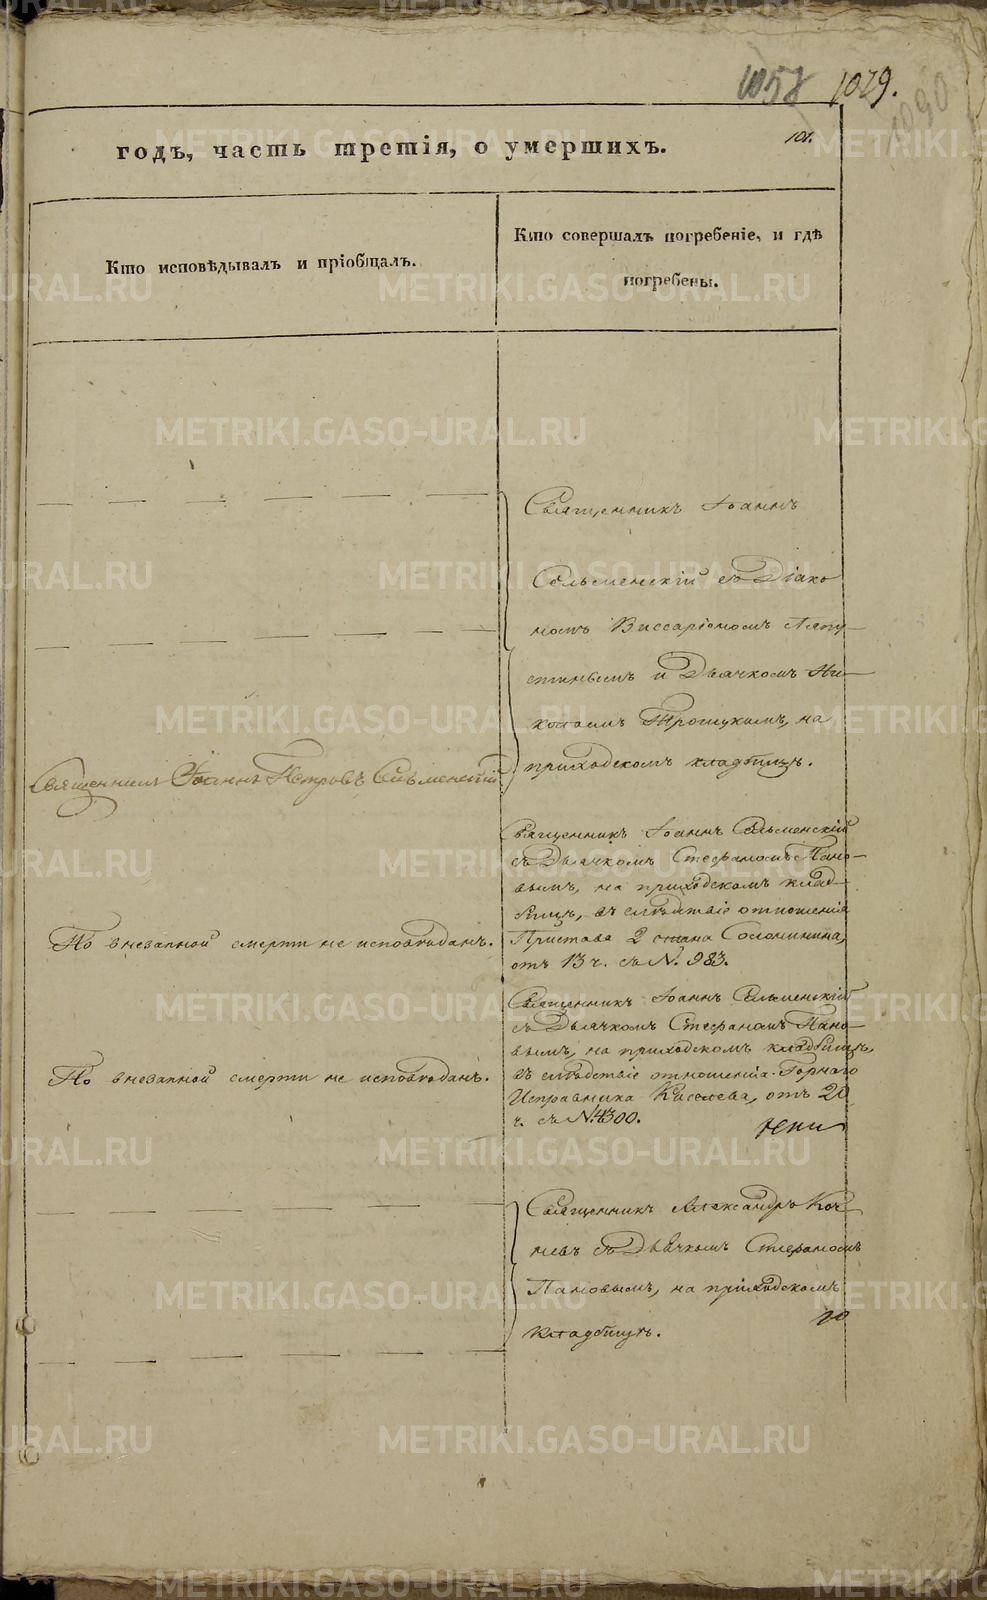 1058 1029.
1090
101.
годъ, часть третія, о умершихъ.
Кто исповѣдывалъ и пріобщалъ.
Кто совершалъ погребеніе, и гдѣ
погребены.
Священникъ Іоаннъ
Сельменскій съ Діако
номъ Виссаріономъ Ляпу-
стинымъ и Дьячкомъ Ни-
колаемъ Троицкимъ, на
приходскомъ кладбищѣ.
Священникъ Іоаннъ Петровъ Сельменскій
Священникъ Іоаннъ Сельменскій
съ Дьячкомъ Стефаномъ Пано-
вымъ, на приходскомъ клад-
бищѣ, въ слѣдствіе отношенія
Пристава 2 стана Соломинина,
отъ 13 ч. съ N. 983.
По внезапной смерти не исповѣданъ.
Священникъ Іоаннъ Сельменскій
съ Дьячкомъ Стефаномъ Пано-
вымъ, на приходскомъ кладбищѣ,
въ слѣдствіе отношенія Горнаго
Исправника Киселева, отъ 20
ч. съ N. 4300.
По внезапной смерти не исповѣданъ.
Священникъ Александръ Коч-
невъ съ Дьячкомъ Стефаномъ
Пановымъ, на приходскомъ
кладбищѣ.
METRIKI.GASO-URAL.RU